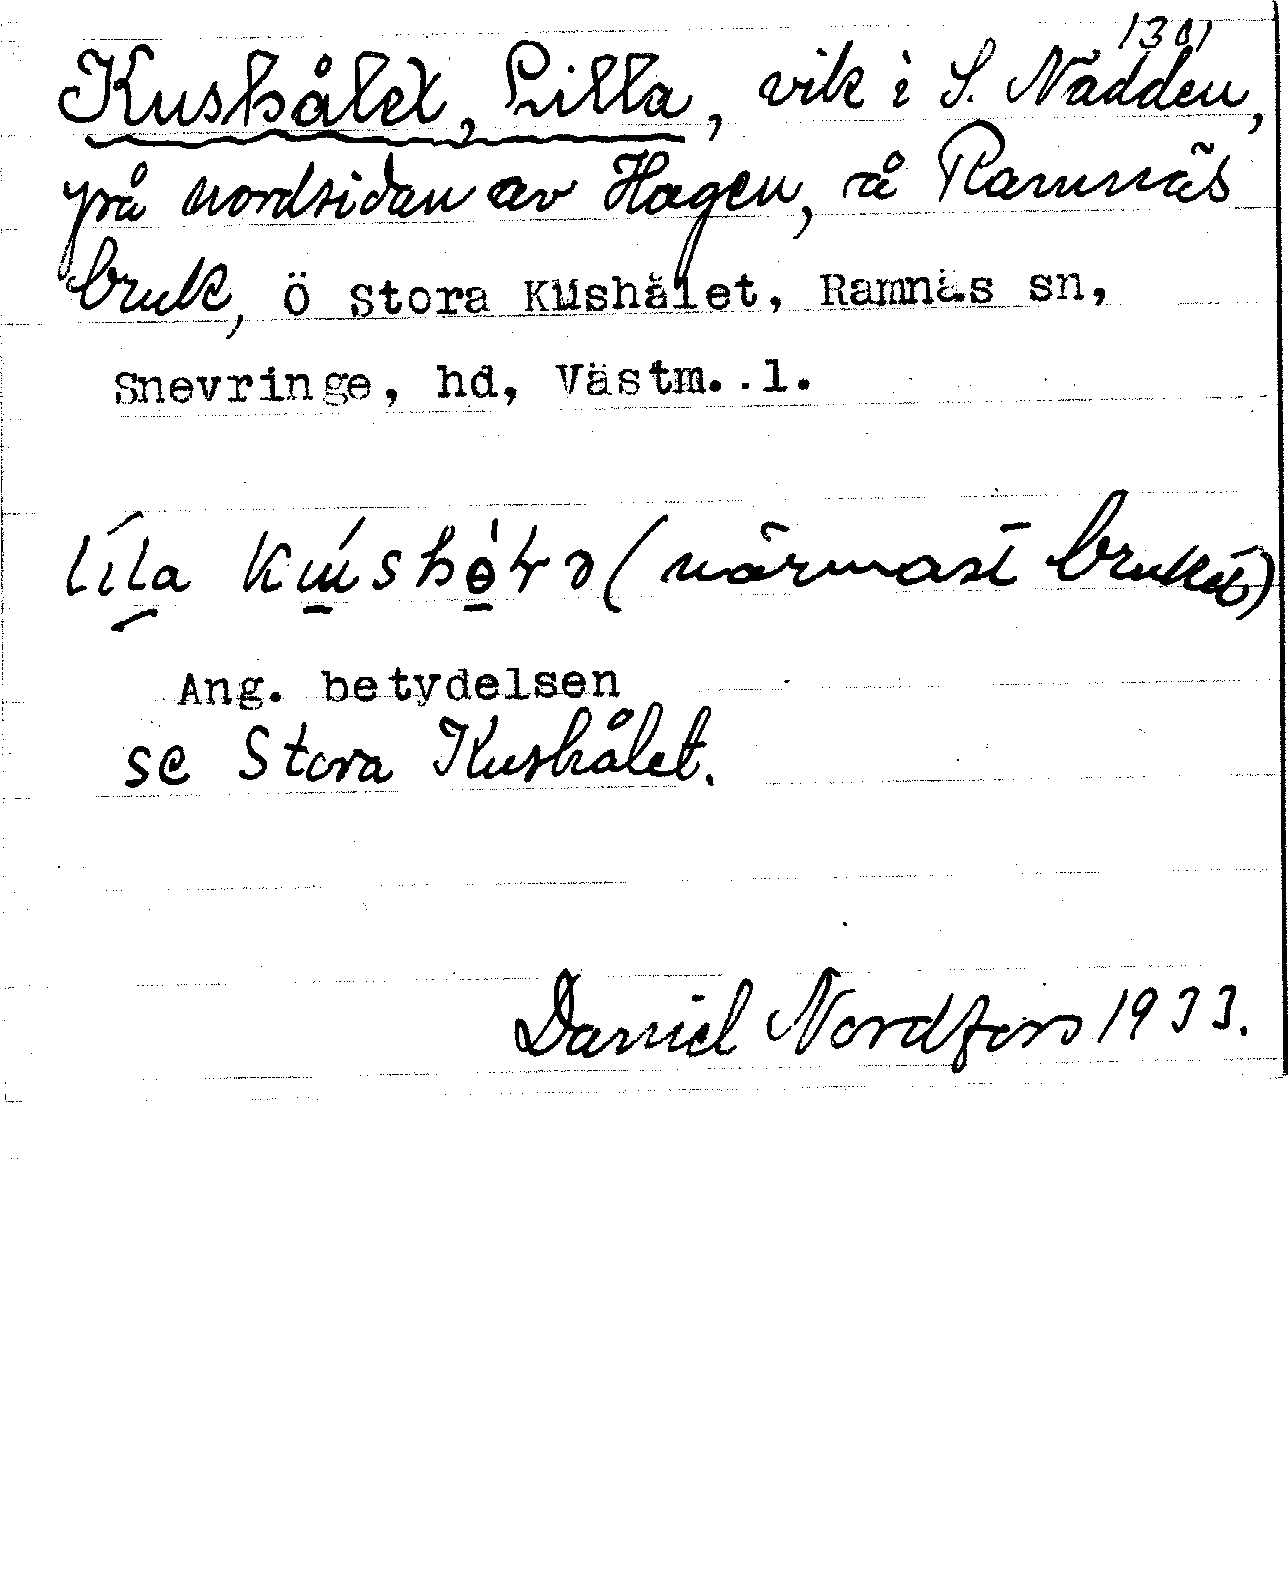 1301
Kushålet, Lilla, vik i S. Nadden,
på nordsidan av Hagen, å Ramnäs
bruk, ö Stora Kushålet, Ramnäs sn,
Snevringe, hd, Västm. l.
(närmast bruket)
Ang. betydelsen
se Stora Kushålet.
Daniel Nordfors 1933.